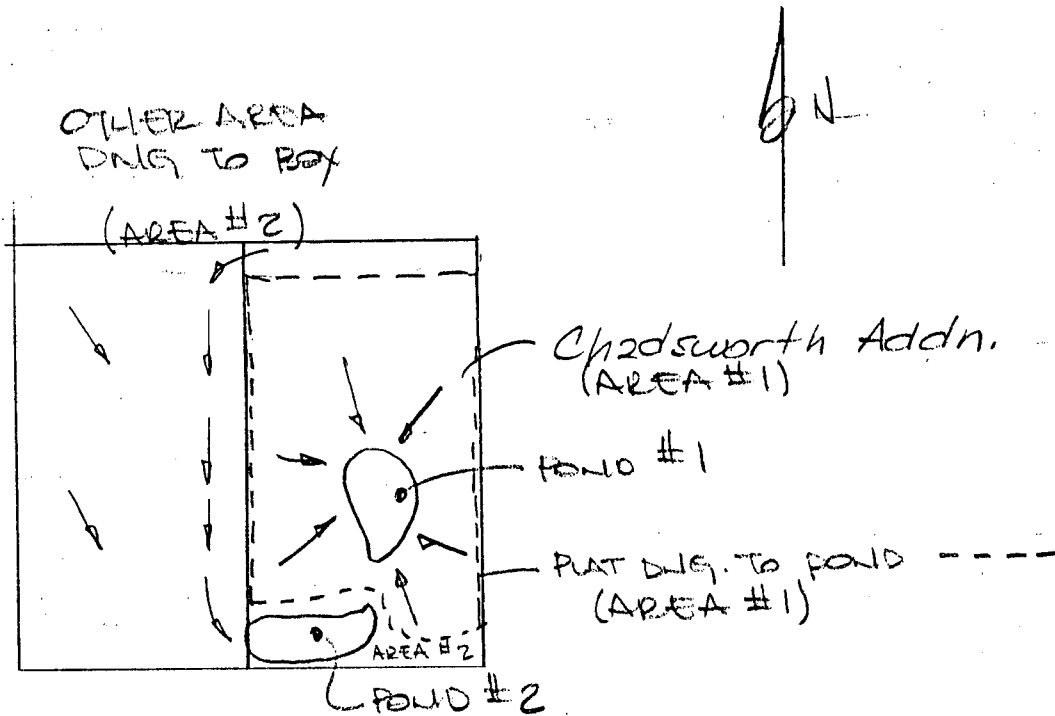 OTHER AREA
DNG TO BOX
(AREA #2)
N
Chadsworth Addn.
(AREA #1)
POND #1
PLAT DNG. TO POND
(AREA #1)
AREA #2
POND #2